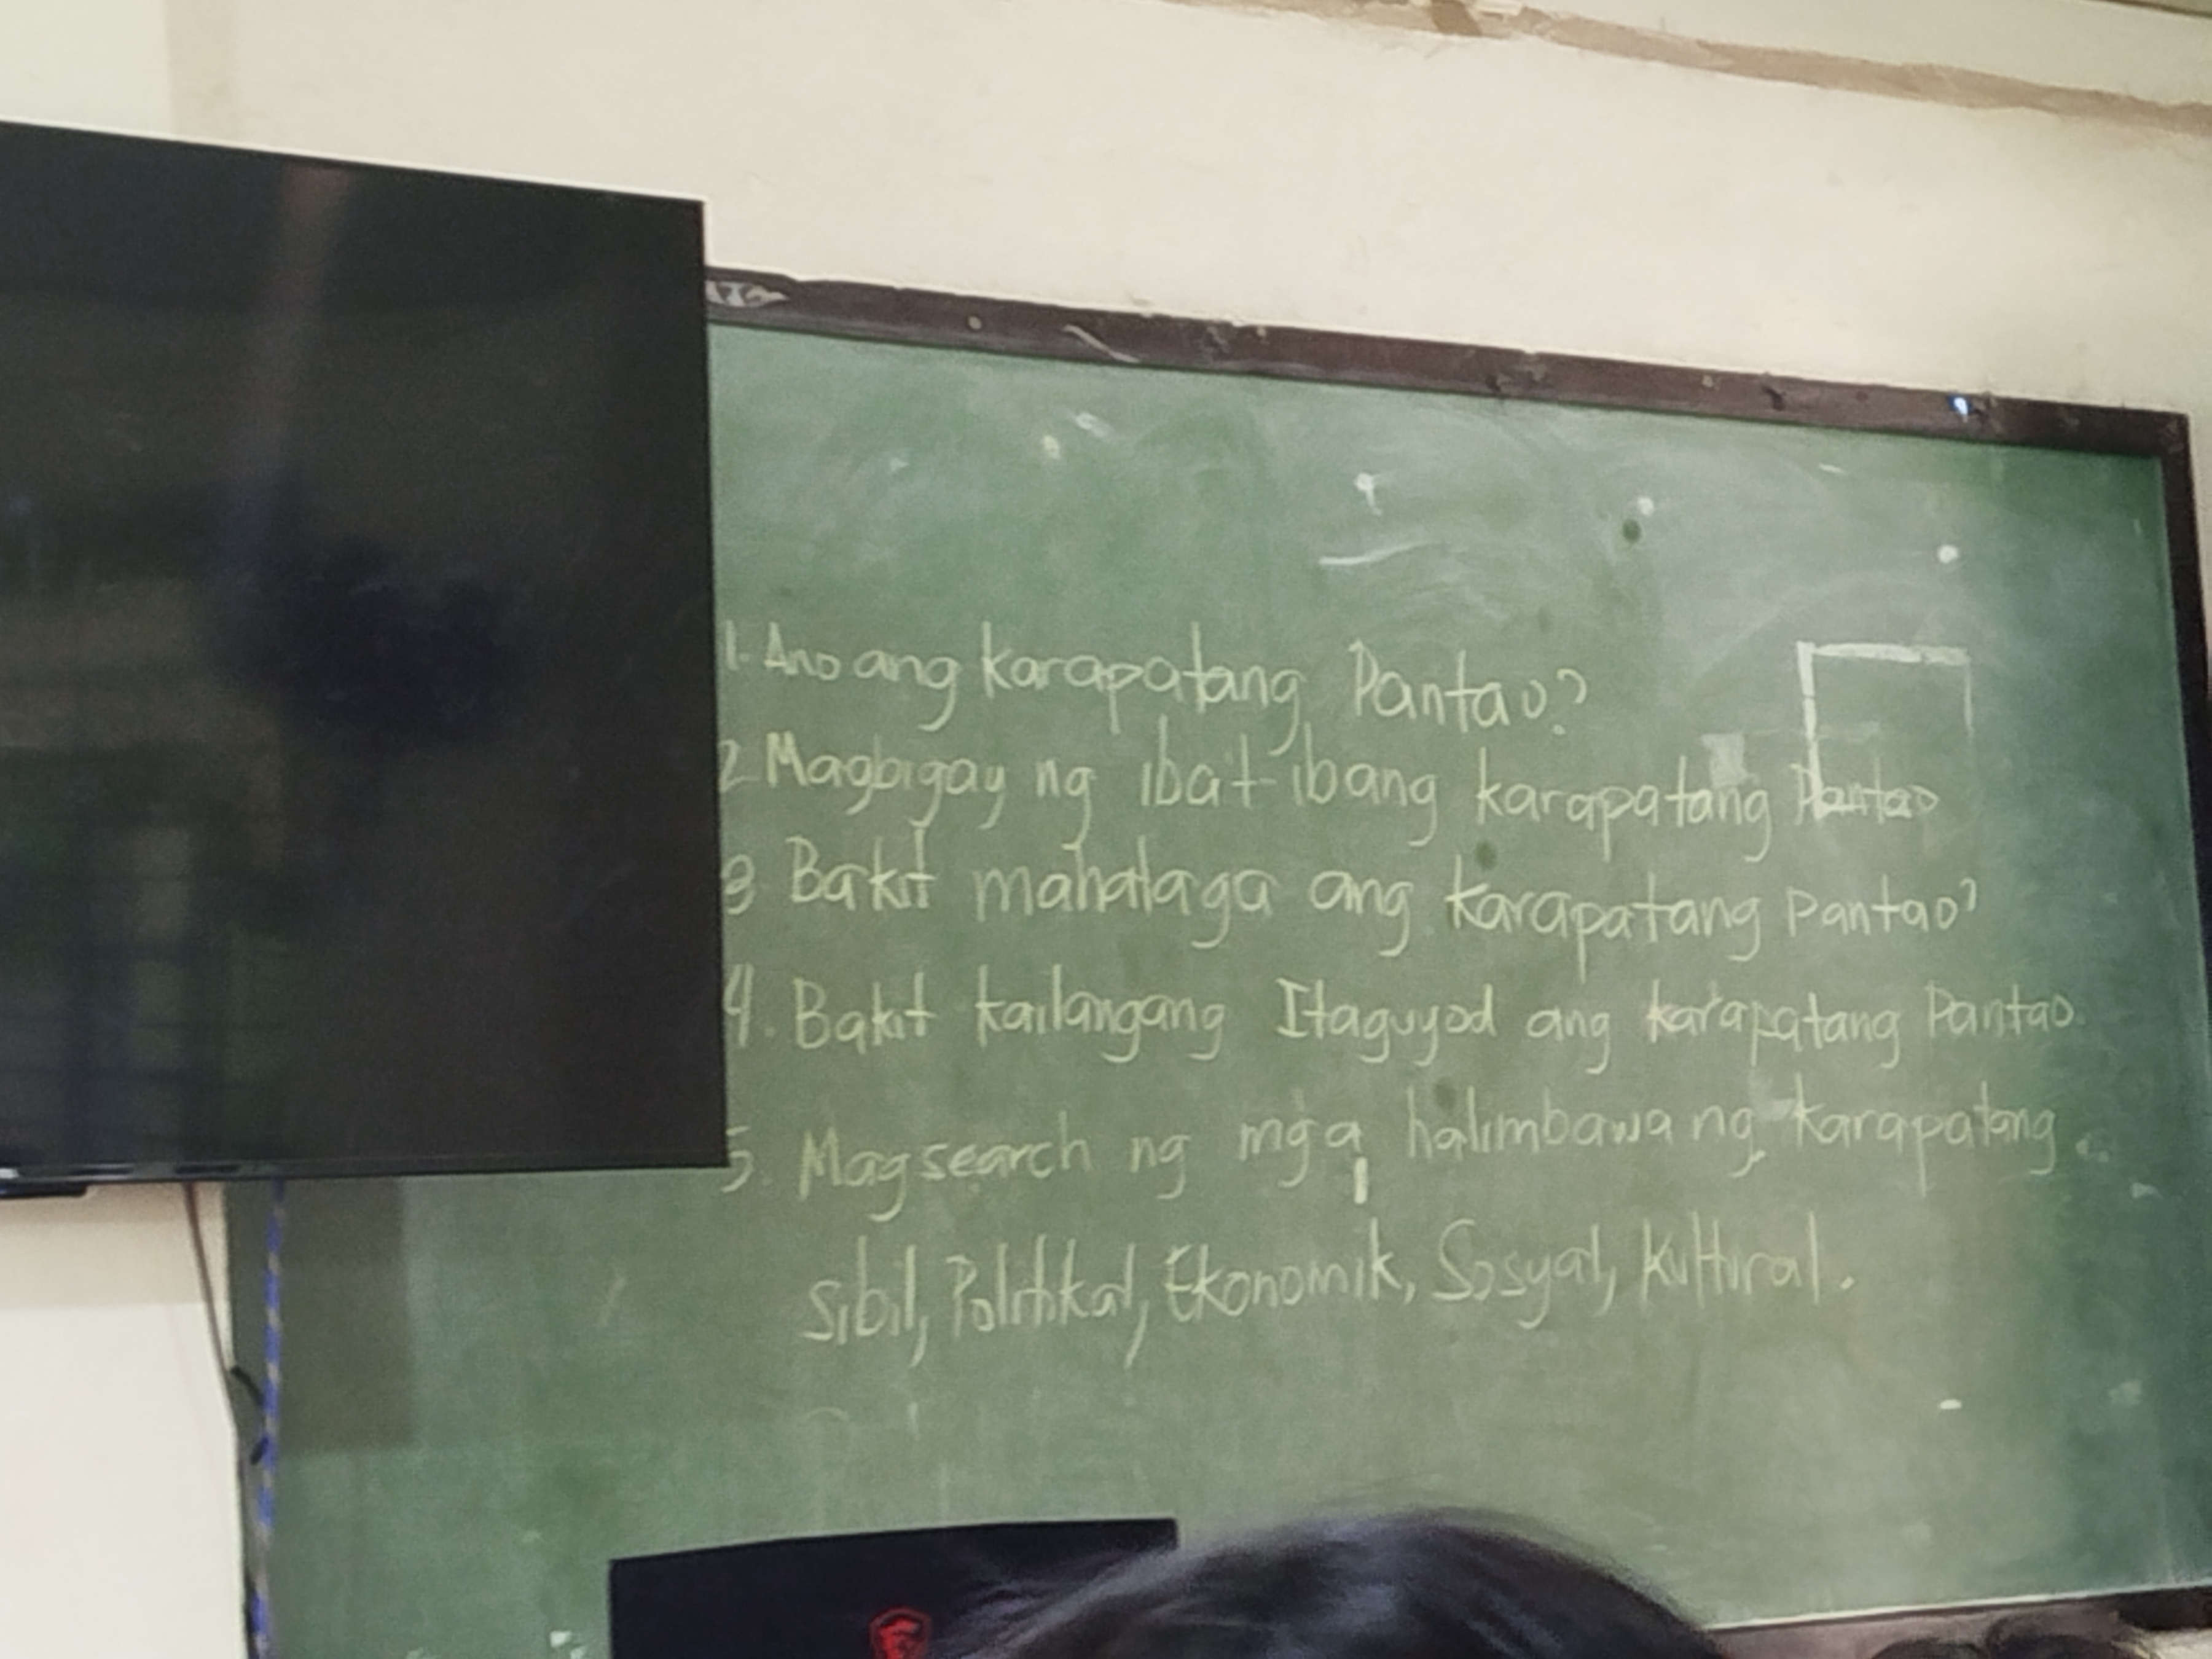 1. Ano ang karapatang Pantao?
2 Magbigay ng iba't-ibang karapatang Pantao
3 Bakit mahalaga ang karapatang pantao?
4. Bakit kailangang Itaguyod ang karapatang Pantao.
5. Magsearch ng mga halimbawa ng karapatang
Sibil, Politikal, Ekonomik, Sosyal, Kultural.